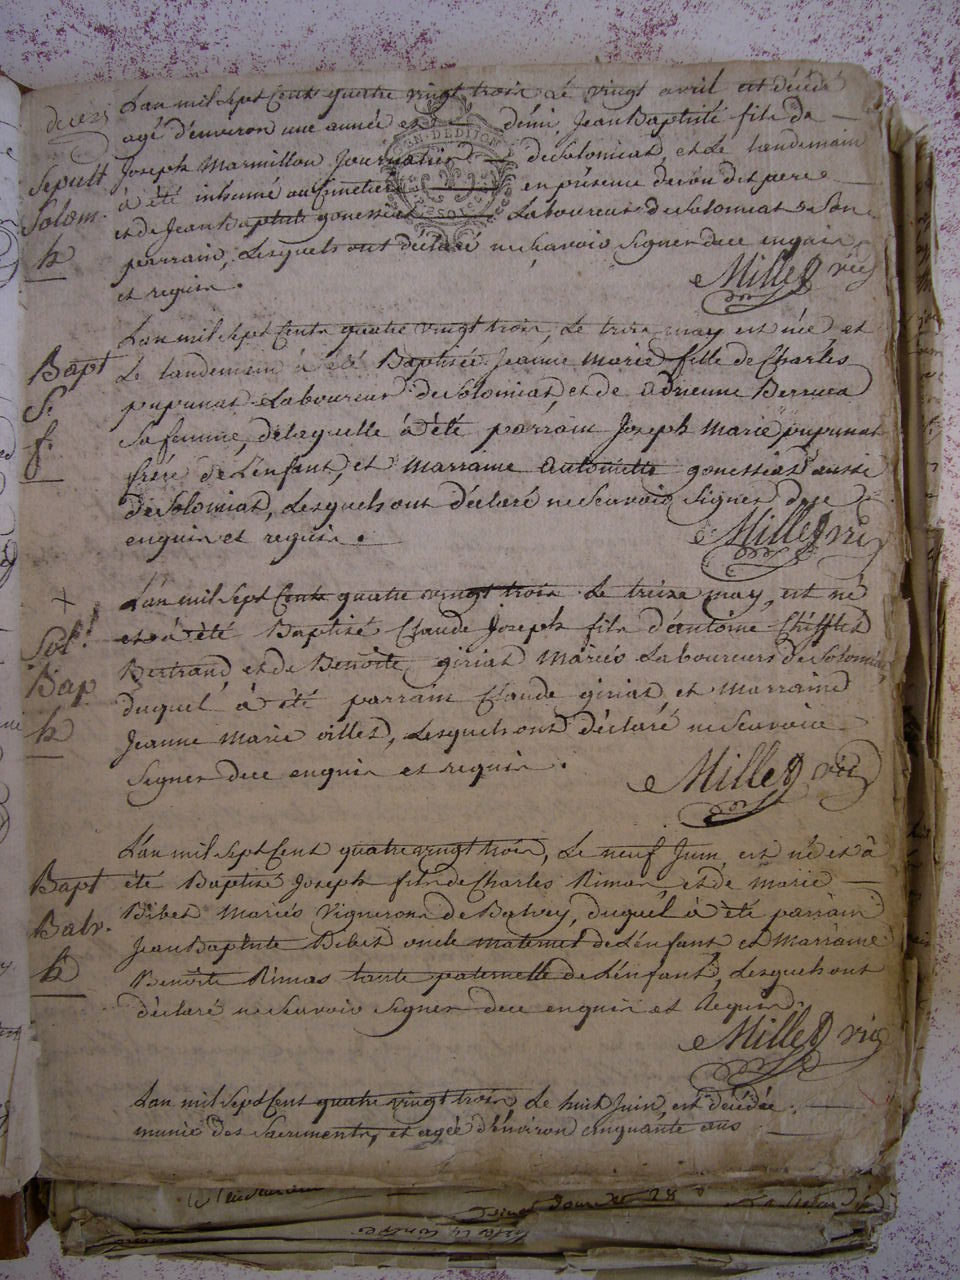 deces
Sepult
Solom.
h
L'an mil sept Cents quatre vingt trois Le vingt avril est décédé
agé d'environ une année et demi, Jean Baptiste fils de
Joseph Marmillon Journalier de Solomiat, et Le landemain
à été inhumé au Cimetiere en présence de son dit pere
et de Jean Baptiste gonessiat Laboureur de Solomiat & Son
parrain, Lesquels ont déclaré ne Scavoir Signer de ce enquis
et requis.
Millet vic
Bapt
S.
f.
L'an mil sept Cents quatre vingt trois, Le trois may est née et
Le landemain à été Baptisée Jeanne Marie fille de Charles
pupunat Laboureur de Solomiat, et de adrienne
Sa femme, de laquelle à été parrain Joseph Marie pupunat
frère de L'enfant, et Marraine antoinette gonessiat aussi
de Solomiat, Lesquels ont déclaré ne Scavoir Signer de ce
enquis et requis.
Millet vic
+
Sol.t
Bap
h
L'an mil sept Cents quatre vingt trois Le treize may, est né
et à été Baptisé Claude Joseph fils d'antoine Chifflet
Bertrand, et de Benoite giriat Mariés Laboureurs de Solomiat,
duquel à été parrain Claude giriat et Marraine
Jeanne Marie villet, Lesquels ont déclaré ne Scavoir
Signer de ce enquis et requis.
Millet vic
Bapt
Balv.
h
L'an mil sept Cent quatre vingt trois, Le neuf Juin, est né et à
été Baptisé Joseph fils de Charles Rimas, et de Marie
Bibet Mariés Vignerons de Balvey, duquel à été parrain
Jean Baptiste Bibet oncle maternel de L'enfant et Marraine
Benoite Rimas tante paternelle de L'enfant, Lesquels ont
déclaré ne Scavoir Signer de ce enquis et Requis.
Millet vic
L'an mil sept Cent quatre vingt trois Le huit Juin, est décédée
munie des Sacrements, et agée d'environ cinquante ans